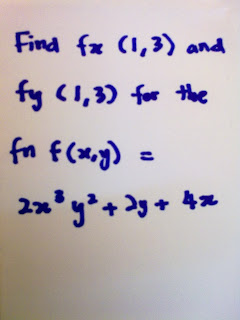 Find fx (1,3) and
fy (1,3) for the
fn f(x,y) =
2x³y² + 2y + 4x